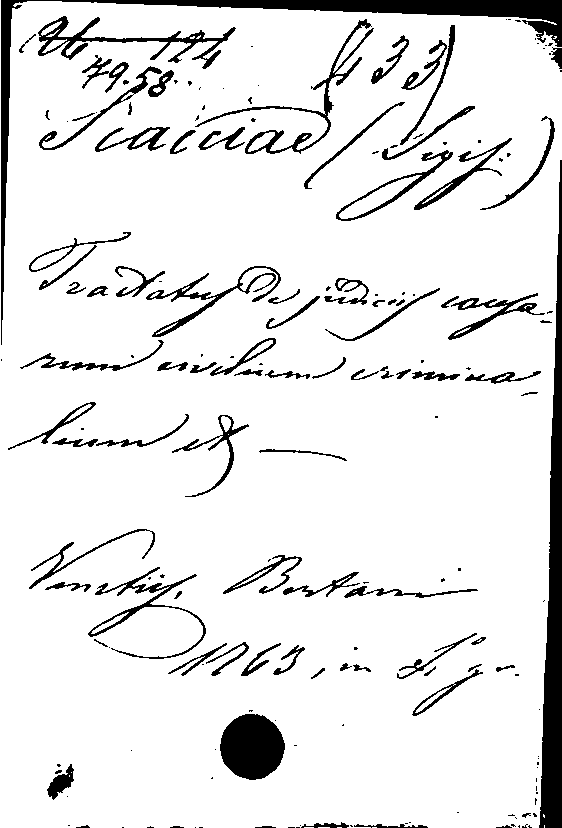 26 124
79.58. (433)
Scacciae (Sigis:)
Tractatus de judiciis causa-
rum civilium crimina-
lium et
Venetiis, Bertani
1763, in f.º gr.